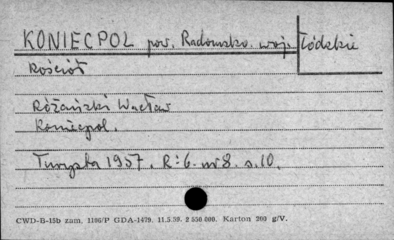 KONIECPOL pow. Radomsko. woj. Łódzkie
Kościół
Różański Wacław
Koniecpol.
Turysta 1957. R:6. nr 8. s. 10.
CWD-B-15b zam. 1196/P GDA-1479. 11.5.59. 2 550 000. Karton 200 g/V.